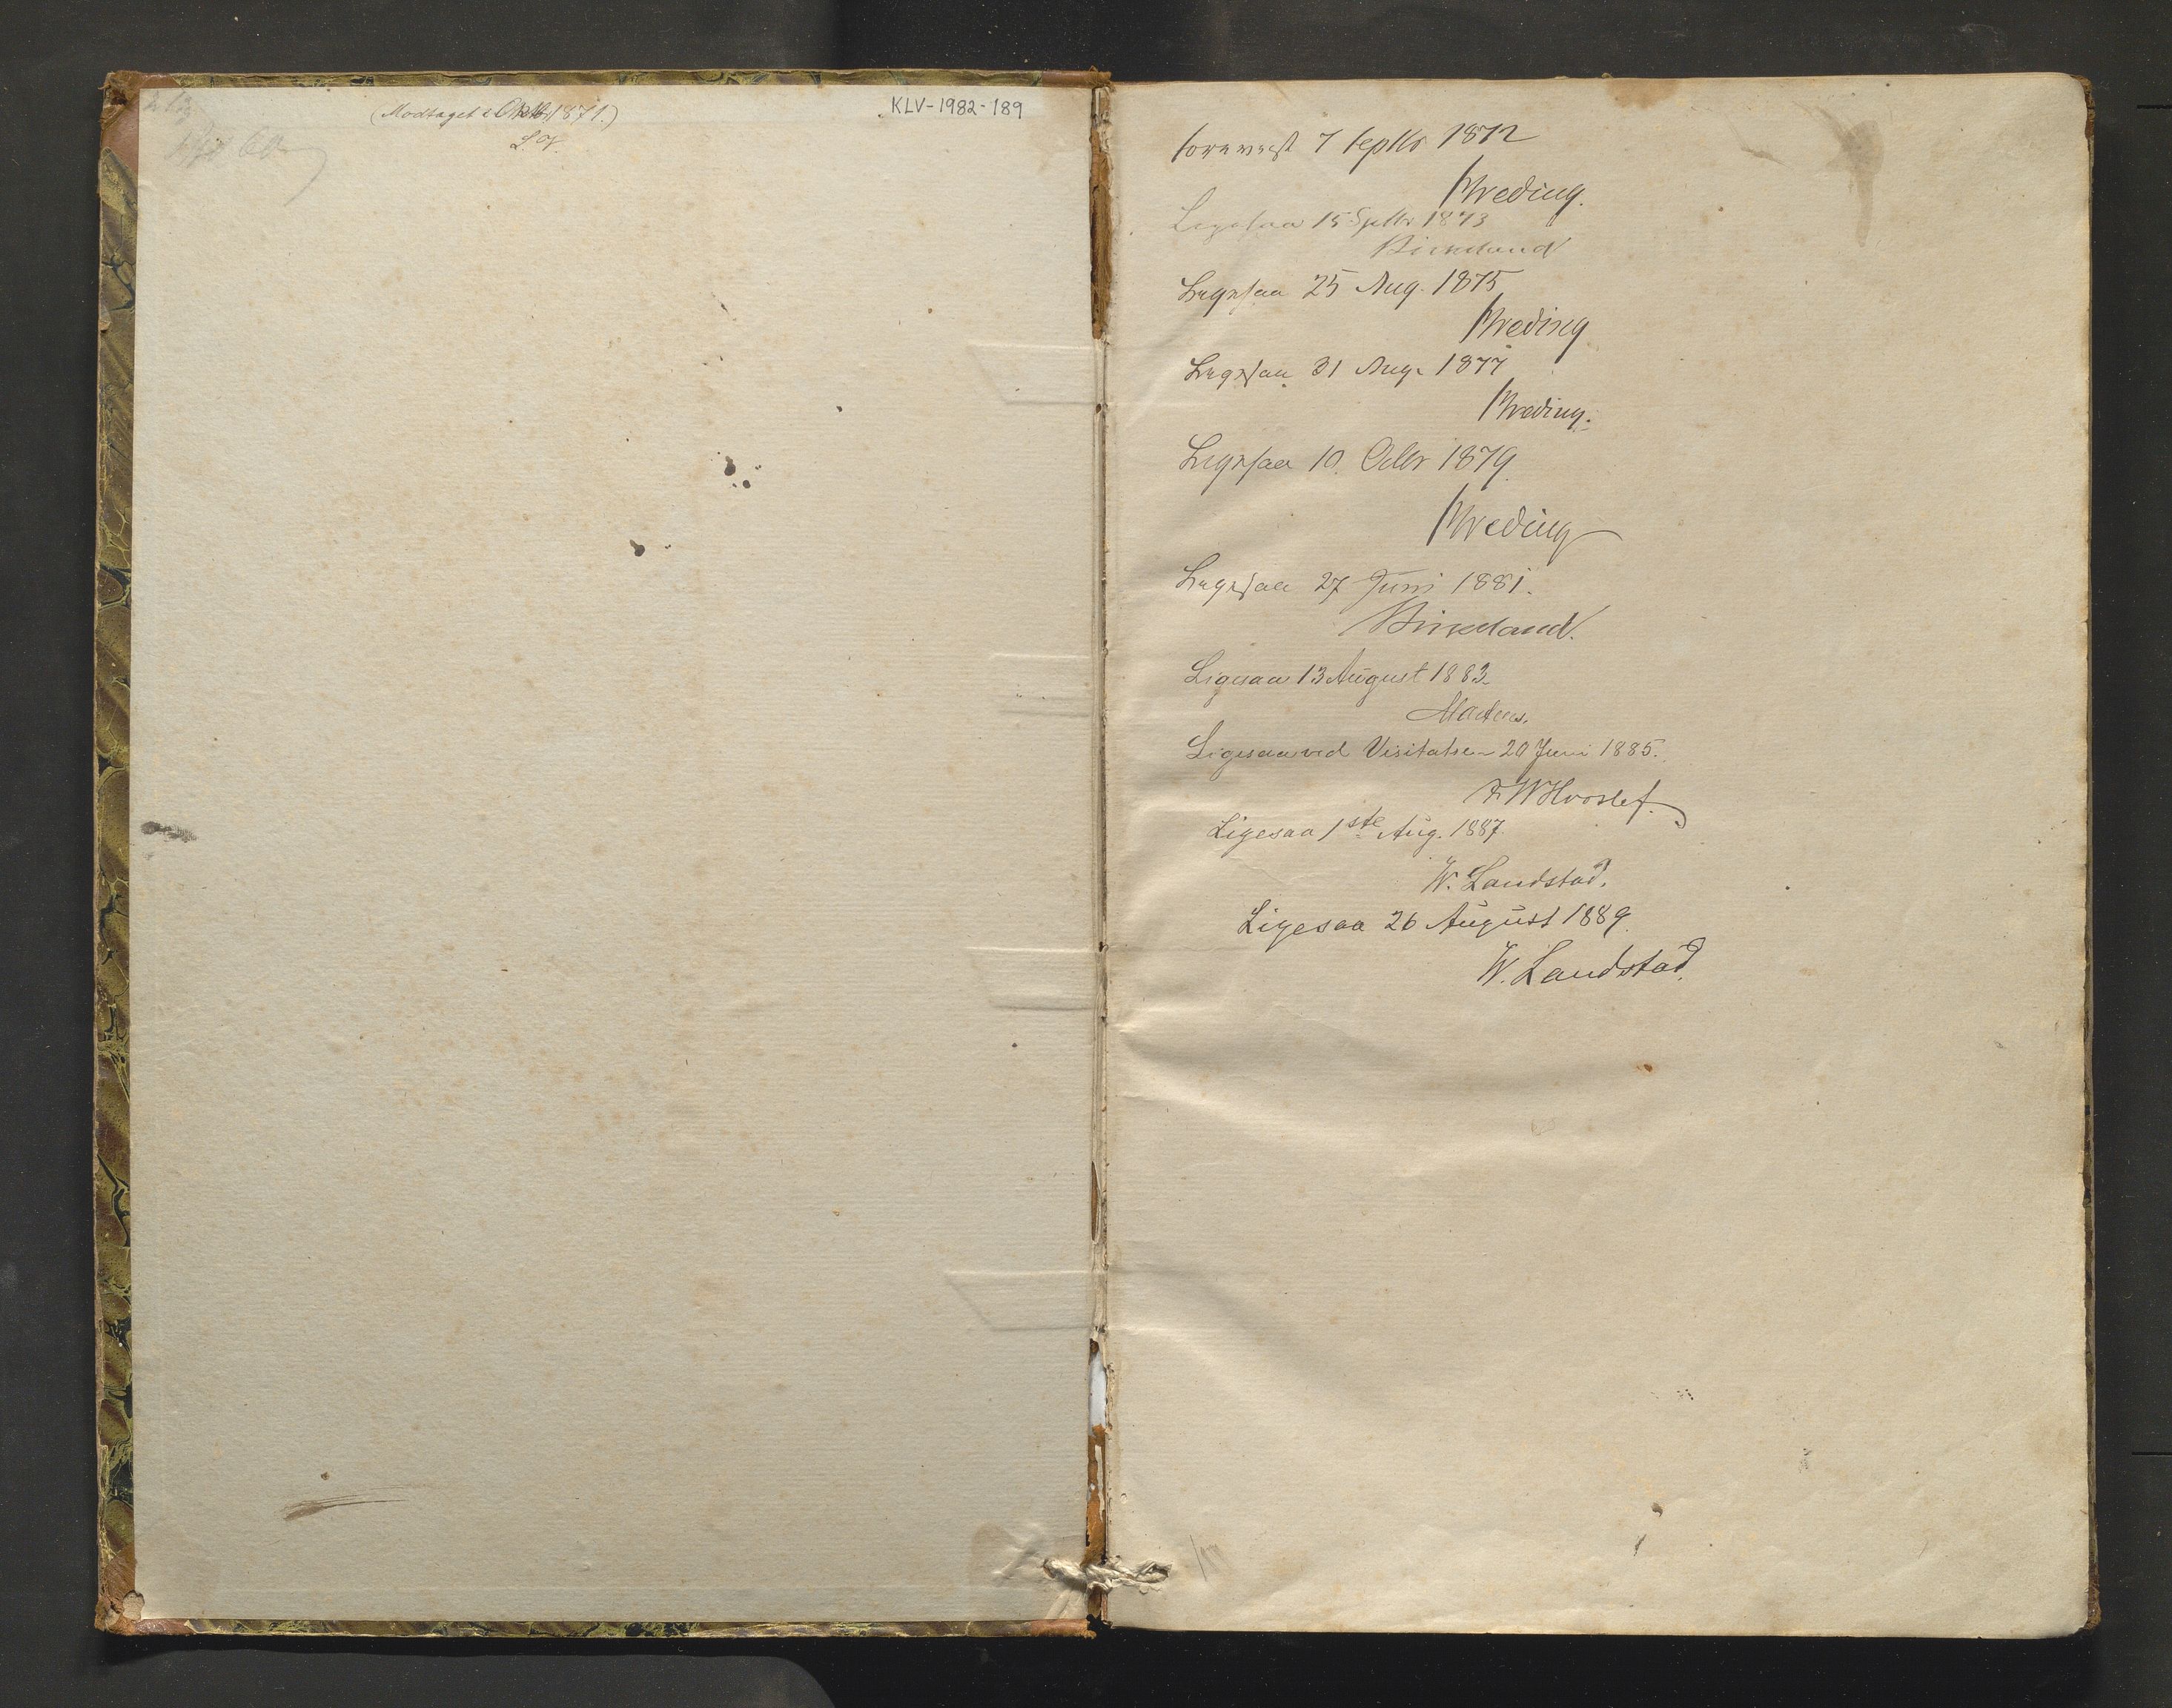 (Modtaget 2 Oktbr 1871.)
L. V.
KLV-1982-189
forevist 7 Septbr 1872
Wreding.
Ligesaa 15 Septbr 1873
Birkeland
Ligesaa 25 Aug. 1875
Wreding
Ligesaa 31 Aug. 1877
Wreding.
Ligesaa 10 Octbr 1879
Wreding
Ligesaa 27 Juni 1881.
Birkeland.
Ligesaa 13 August 1883
Ligesaa ved Visitatsen 20 Juni 1885.
F. W. Hvoslef.
Ligesaa 1ste Aug. 1887.
W. Landstad.
Ligesaa 26 August 1889.
W. Landstad.